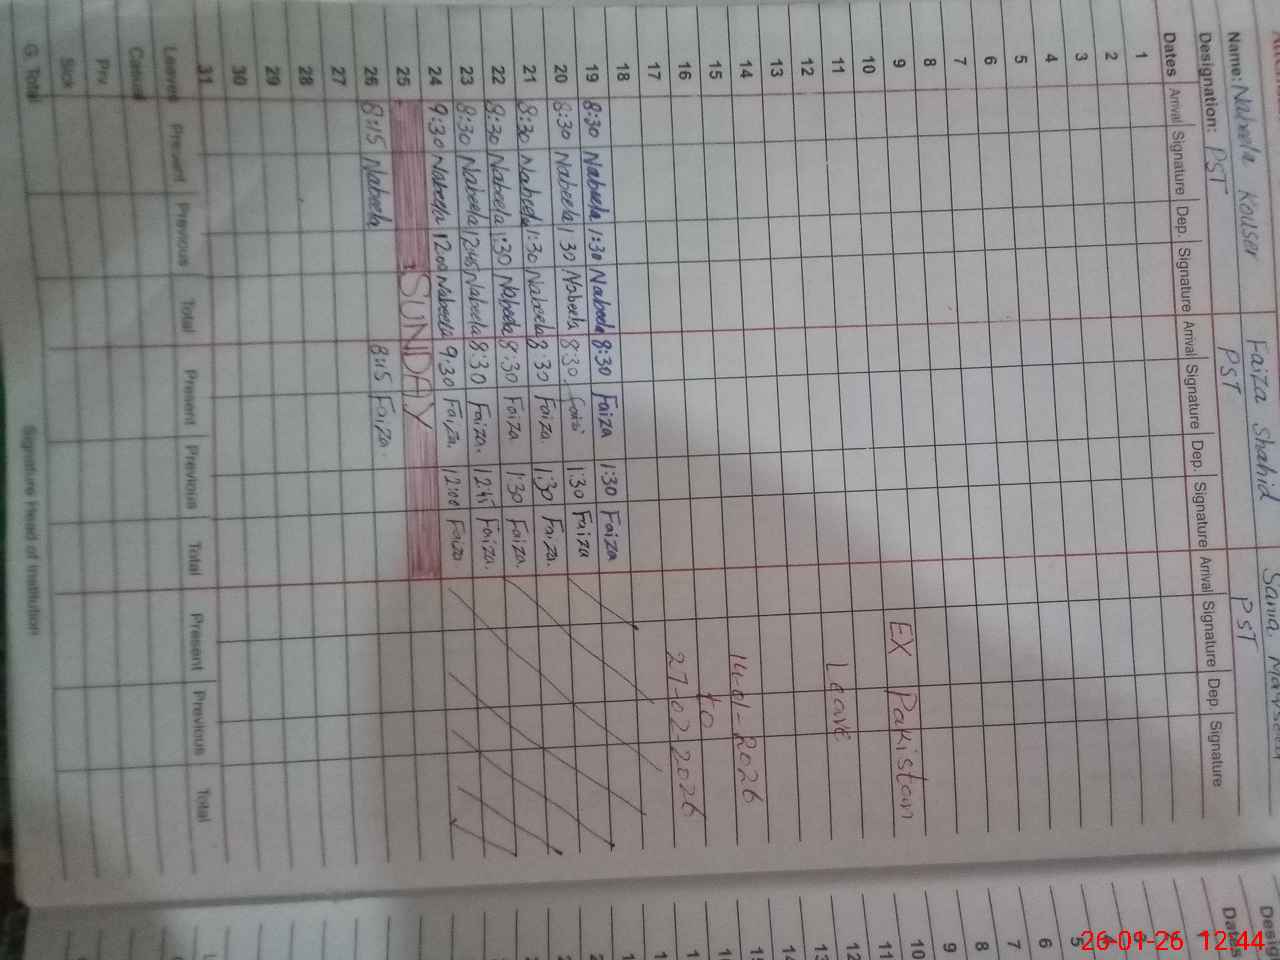 Name: Nabeela Kouser Faiza Shahid Sania
Designation: PST PST PST
Dates Arrival Signature Dep. Signature Arrival Signature Dep. Signature Arrival Signature Dep. Signature
1
2
3
4
5
6
7
8
9 EX Pakistan
10
11 Leave
12
13
14 14-01-2026
15 to
16 27-02-2026
17
18
19 8:30 Nabeela 1:30 Nabeela 8:30 Faiza 1:30 Faiza
20 8:30 Nabeela 1 30 Nabeela 8:30. 1:30 Faiza
21 8:30 Nabeela 1:30 Nabeela 8:30 Faiza. 1:30 Faiza.
22 8:30 Nabeela 1:30 Nabeela 8:30 Faiza 1:30 Faiza.
23 8:30 Nabeela 12:45 Nabeela 8:30 Faiza. 12:45 Faiza.
24 9:30 Nabeela 12:00 Nabeela 9:30 Faiza. 12:00 Faiza.
25 SUNDAY
26 8:15 Nabeela 8:15 Faiza.
27
28
29
30
31
Leaves Present Previous Total Present Previous Total Present Previous Total
Casual
Prv.
Sick
G. Total
Signature Head of Institution
Dates
4
5
6
7
8
9
10
11
12
13
14
26-01-26 12:44